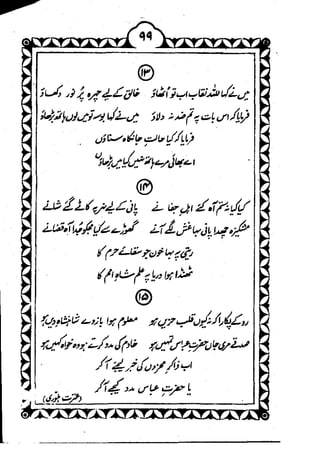 ۹۹
۱۳
میں نے کہا للہ نقاب اب تو اٹھاؤ خالق کے لیے چہرہ پُر نور دکھاؤ
فرمایا کہ اس بات پہ تم ضد نہ دلاؤ میں نے کہا بوسہ تو میں لوں ہاتھ بڑھاؤ
فرمایا کہ کیا حالت جانکاہ سناؤں
اے بھائی مرے ہاتھ نہیں کیا میں بڑھاؤں
۱۴
کیا کیا نہ ستم آہ کئے اہل جفا نے پانی کے لیے نہر پہ کاٹے گئے شانے
مشکیزہ چھدا پانی بہا غش لگے آنے گھوڑے سے کیا مجھ کو جدا آہ قضا نے
ریتی پہ بہا خون جو سقائے حرم کا
ٹھنڈا ہوا دریا پہ علم شاہ امم کا
۱۵
رو کے پکارا کہ نہ کیوں قلب حزیں ہو معلوم ہوا بازوئے شاہنشاہ دیں ہو
صدقے مری جاں حضرت عباس تمہیں ہو خادم کی مدد کرتے ہو
اب ذاکر محزوں کی خبر لیجئے آ کر
یا حضرت عباس مدد کیجئے آ کر